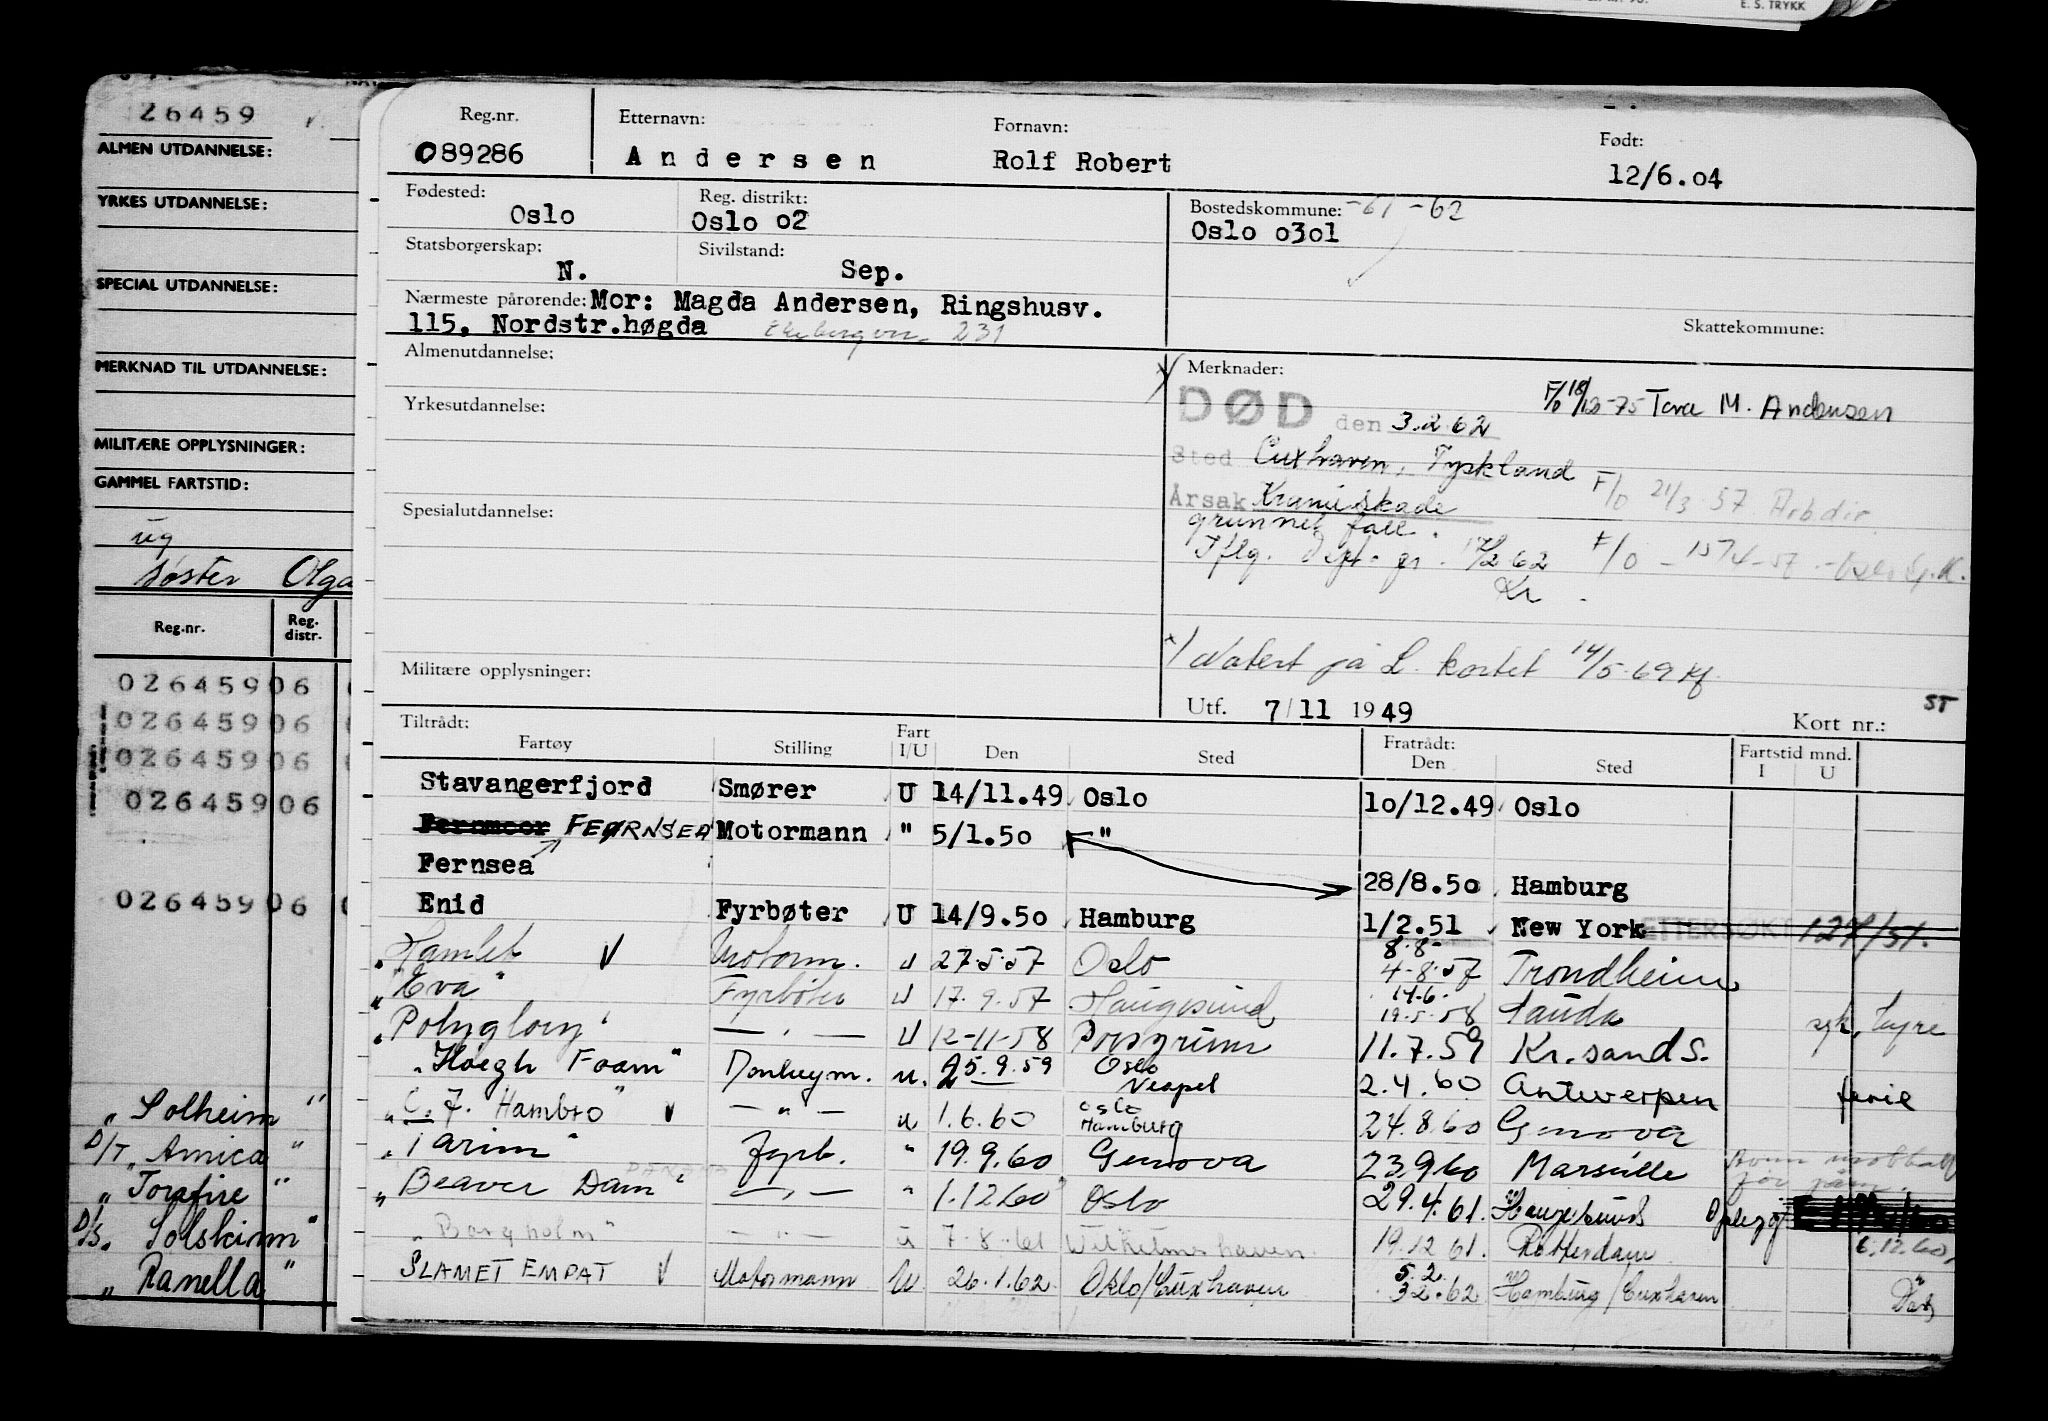 E. S. TRYKK
26459
ALMEN UTDANNELSE:
YRKES UTDANNELSE:
SPECIAL UTDANNELSE:
MERKNAD TIL UTDANNELSE:
MILITÆRE OPPLYSNINGER:
GAMMEL FARTSTID:
ug
søster Olga
Reg.nr. Reg. distr.
02645906
02645906
02645906
02645906
02645906
"Solheim"
D/T "Arnica"
"Torafire"
D/S. "Solskinn"
"Ranella"
Reg.nr. Etternavn: Fornavn: Født:
089286 Andersen Rolf Robert 12/6.04
Fødested: Reg. distrikt: Bostedskommune: -61 -62
Oslo Oslo o2 Oslo o3o1
Statsborgerskap: Sivilstand:
N. Sep.
Nærmeste pårørende: Mor: Magda Andersen, Ringshusv.
115, Nordstr.høgda 231
Skattekommune:
Almenutdannelse:
Merknader:
F/o 18/12-75 Tova M. Andersen
DØD den 3.2.62
Yrkesutdannelse:
Sted Cuxhaven, Tyskland
F/o 21/3 57 Arb.dir.
Årsak Kranieskade
grunnet fall.
Spesialutdannelse:
Iflg. 62 F/o
Kr.
x/ Notert på L. kortet 14/5-69
Militære opplysninger:
Utf. 7/11 1949 Kort nr.: ST
Tiltrådt: Fratrådt: Fartstid mnd.
Fartøy Stilling Fart I/U Den Sted Den Sted I U
Stavangerfjord Smører U 14/11.49 Oslo 10/12.49 Oslo
Fernmoor FERNSEA Motormann " 5/1.50 "
Fernsea 28/8.50 Hamburg
Enid Fyrbøter U 14/9.50 Hamburg 1/2.51 New York ETTERSØKT 12/4/51.
"Hamlet V Motorm. U 27.5.57 Oslo 8.8- 4-8-57 Trondheim
"Eva" Fyrbøter U 17.9.57 Haugesund 14.6. 19.5.58 Sauda
"Polyglory" — " — U 12-11-58 Porsgrunn 11.7.59 Kr.sand S.
"Høegh Foam" Donkeym. u. 25.9.59 Oslo Neapel 2.4.60 Antwerpen ferie
"C. J. Hambro" V — " — u 1.6.60 Oslo Hamburg 24.8.60 Genova
"Tarim" Fyrb. " 19.9.60 Genova 23.9.60 Marseille
"Beaver Dam" — " — " 1.12.60 Oslo 29.4.61. Haugesund Oplagt 6.12.60,
"Borgholm" — " — u 7.8.61 Wilhelmshaven 19.12.61. Rotterdam
SLAMET EMPAT V Motormann U 26.1.62 Oslo/Cuxhaven 5.2. 3.2.62 Hamburg/Cuxhaven Død